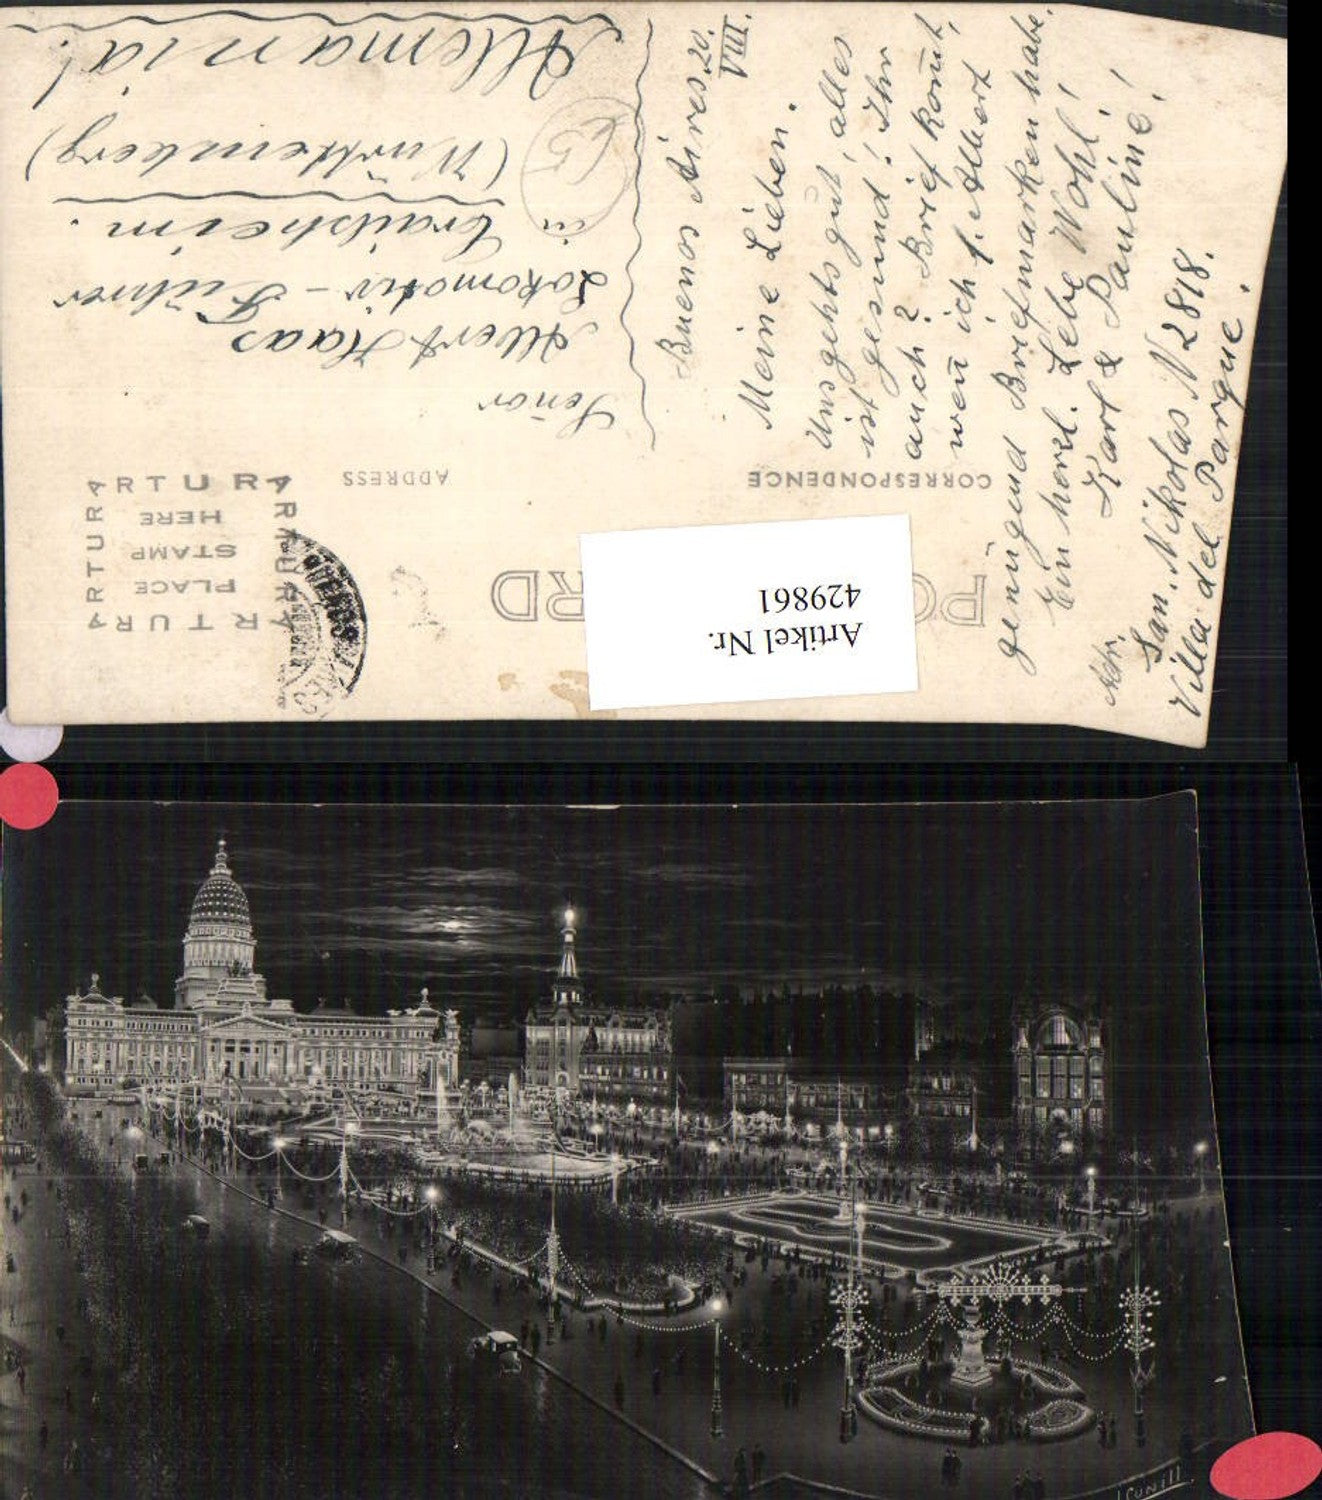 POST CARD
CORRESPONDENCE
ADDRESS
ARTURA
ARTURA
ARTURA
ARTURA
PLACE
STAMP
HERE
Artikel Nr.
429861
Buenos Aires 20.
VIII.
Meine Lieben.
Uns gehts gut, alles
ist gesund! Ihr
auch? Brief kom̄t,
wen̄ ich f. Albert
genügend Briefmarken habe.
Ein herzl. Lebe Wohl!
Karl & Pauline!
Adr.
San. Nikolas N 2818.
Villa del Parque.
Señor
Albert Haas
Lokomotiv-Führer
in Crailsheim.
(Württemberg)
Allemania!
65